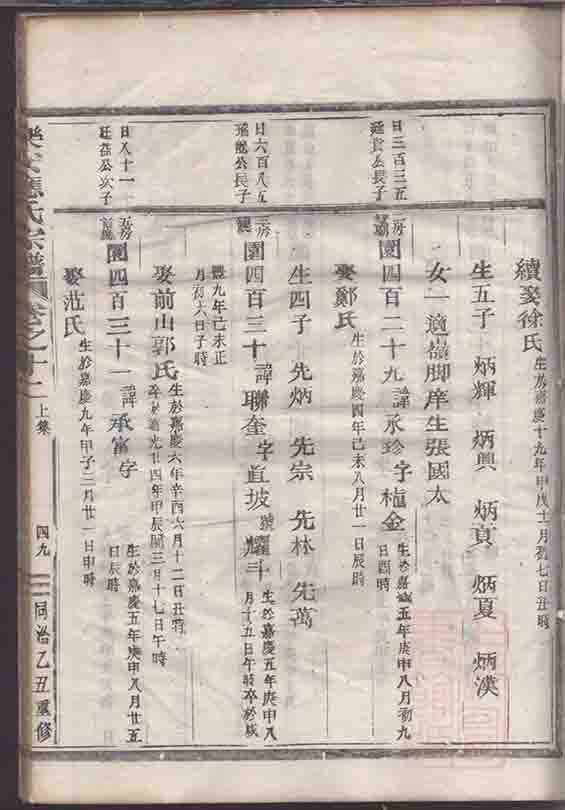 續娶徐氏
生於嘉慶十九年甲戌十一月初七日丑時
生五子 炳輝 炳興 炳真 炳夏 炳漢
女一適嶺脚庠生張國太
日三百三五
廷貴公長子
房
園四百二十九諱承珍字
金
生於嘉慶五年庚申八月初九
日酉時
娶鄭氏
生於嘉慶四年己未八月廿一日辰時
生四子 先炳 先宗 先林 先萬
日六百八五
瑤龍公長子
房
園四百三十諱聯奎字直坡號耀斗
生於嘉慶五年庚申八
月十五日午時卒於咸
豐九年己未正
月初六日子時
娶前山郭氏
生於嘉慶六年辛酉六月十二日丑時
卒於道光廿四年甲辰閏三月十七日午時
日八十一
廷葆公次子
房
園四百三十一諱承富字
生於嘉慶五年庚申八月廿五
日辰時
娶范氏
生於嘉慶九年甲子二月廿一日申時
氏宗譜
卷之十二
上集
四九
同治乙丑重修